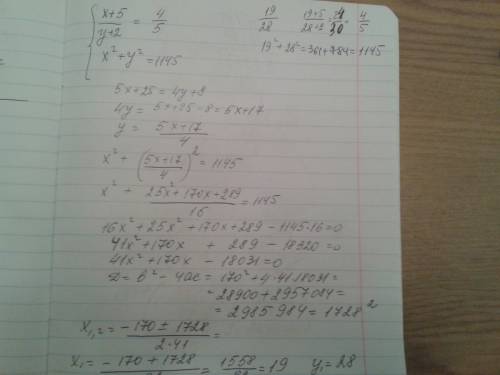 { x+5/y+2 = 4/5
x² + y² = 1145
19/28 19+5/28+2 = 24/30 = 4/5
19² + 28² = 361 + 784 = 1145
5x + 25 = 4y + 8
4y = 5x + 25 - 8 = 5x + 17
y = 5x + 17/4
x² + (5x + 17/4)² = 1145
x² + 25x² + 170x + 289/16 = 1145
16x² + 25x² + 170x + 289 - 1145·16 = 0
41x² + 170x + 289 - 18320 = 0
41x² + 170x - 18031 = 0
D = b² - 4ac = 170² + 4·41·18031 =
= 28900 + 2957084 =
= 2985984 = 1728²
x₁,₂ = -170 ± 1728/2·41 =
x₁ = -170 + 1728/82 = 1558/82 = 19 y₁ = 28